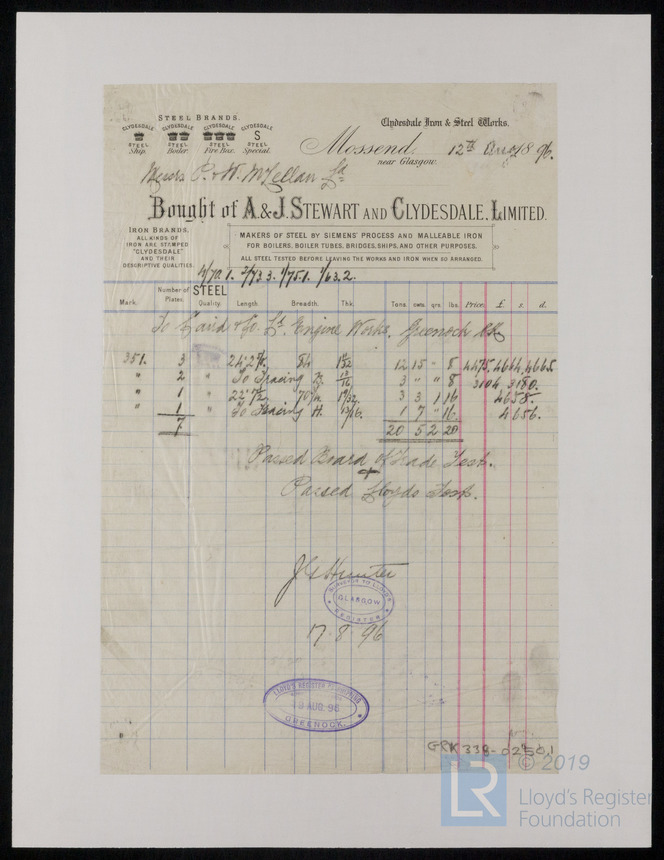 STEEL BRANDS.
CLYDESDALE CLYDESDALE CLYDESDALE CLYDESDALE
S
STEEL STEEL STEEL STEEL
Ship. Boiler. Fire Box. Special.
Clydesdale Iron & Steel Works.
Mossend, 12th Aug 1896.
near Glasgow.
Messrs P. & W. McLellan Ld
Bought of A. & J. STEWART AND CLYDESDALE, LIMITED.
IRON BRANDS.
ALL KINDS OF
IRON ARE STAMPED
"CLYDESDALE"
AND THEIR
DESCRIPTIVE QUALITIES.
MAKERS OF STEEL BY SIEMENS' PROCESS AND MALLEABLE IRON
FOR BOILERS, BOILER TUBES, BRIDGES, SHIPS, AND OTHER PURPOSES.
ALL STEEL TESTED BEFORE LEAVING THE WORKS AND IRON WHEN SO ARRANGED.
4/72 1. 2/73 3. 1/75.1. 1/63.2.
Mark. Number of Plates. STEEL Quality. Length. Breadth. Thk. Tons. cwts. qrs. lbs. Price. £ s. d.
To Caird & Co. Ld. Engine Works, Greenock
351. 3 " 84 12 15 - 8 4475, 4664, 4665
" 2 " To Tracing 3 " " 8 3104 3180.
" 1 " 3 3 1 16 4658.
" 1 " To Tracing H. 13/16. 1 7 " 16. 4656.
7 20 5 2 20
Passed Board of Trade Test.
Passed Lloyds Test.
Hunter
SURVEYOR TO LLOYD'S
GLASGOW
REGISTER
17.8.96
LLOYD'S REGISTER OF SHIPPING
AUG. 96
GREENOCK.
GRK 338-0250.1
© 2019
LR
Lloyd's Register
Foundation